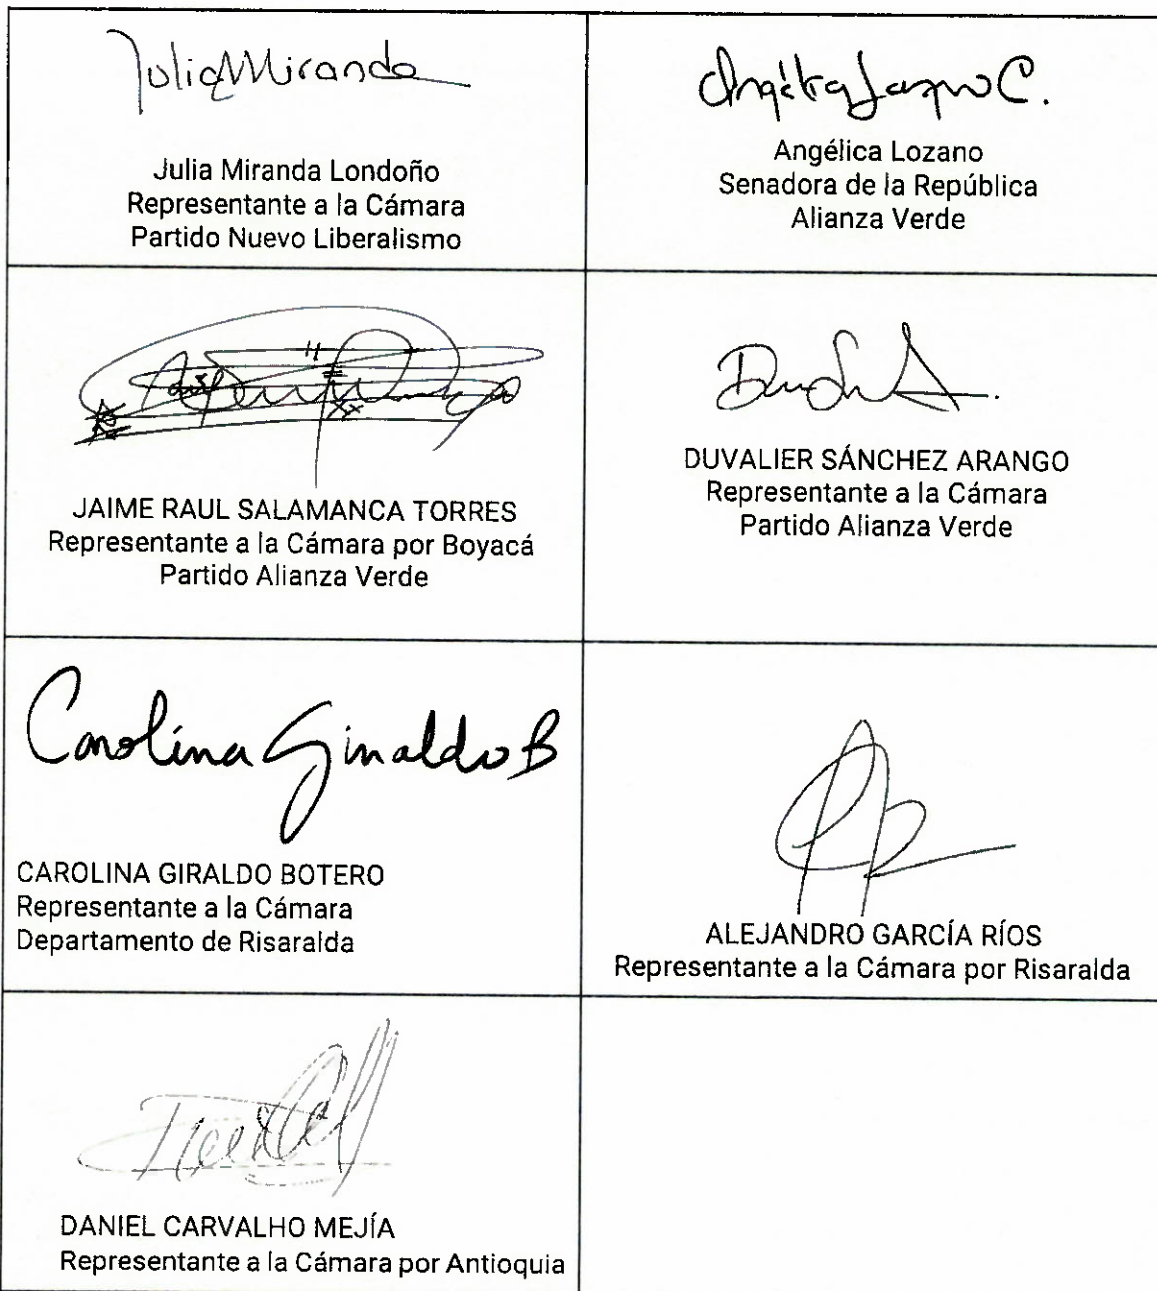 Julia Miranda
Julia Miranda Londoño
Representante a la Cámara
Partido Nuevo Liberalismo
Angélica Lozano C.
Angélica Lozano
Senadora de la República
Alianza Verde
JAIME RAUL SALAMANCA TORRES
Representante a la Cámara por Boyacá
Partido Alianza Verde
DUVALIER SÁNCHEZ ARANGO
Representante a la Cámara
Partido Alianza Verde
Carolina Giraldo B
CAROLINA GIRALDO BOTERO
Representante a la Cámara
Departamento de Risaralda
ALEJANDRO GARCÍA RÍOS
Representante a la Cámara por Risaralda
DANIEL CARVALHO MEJÍA
Representante a la Cámara por Antioquia